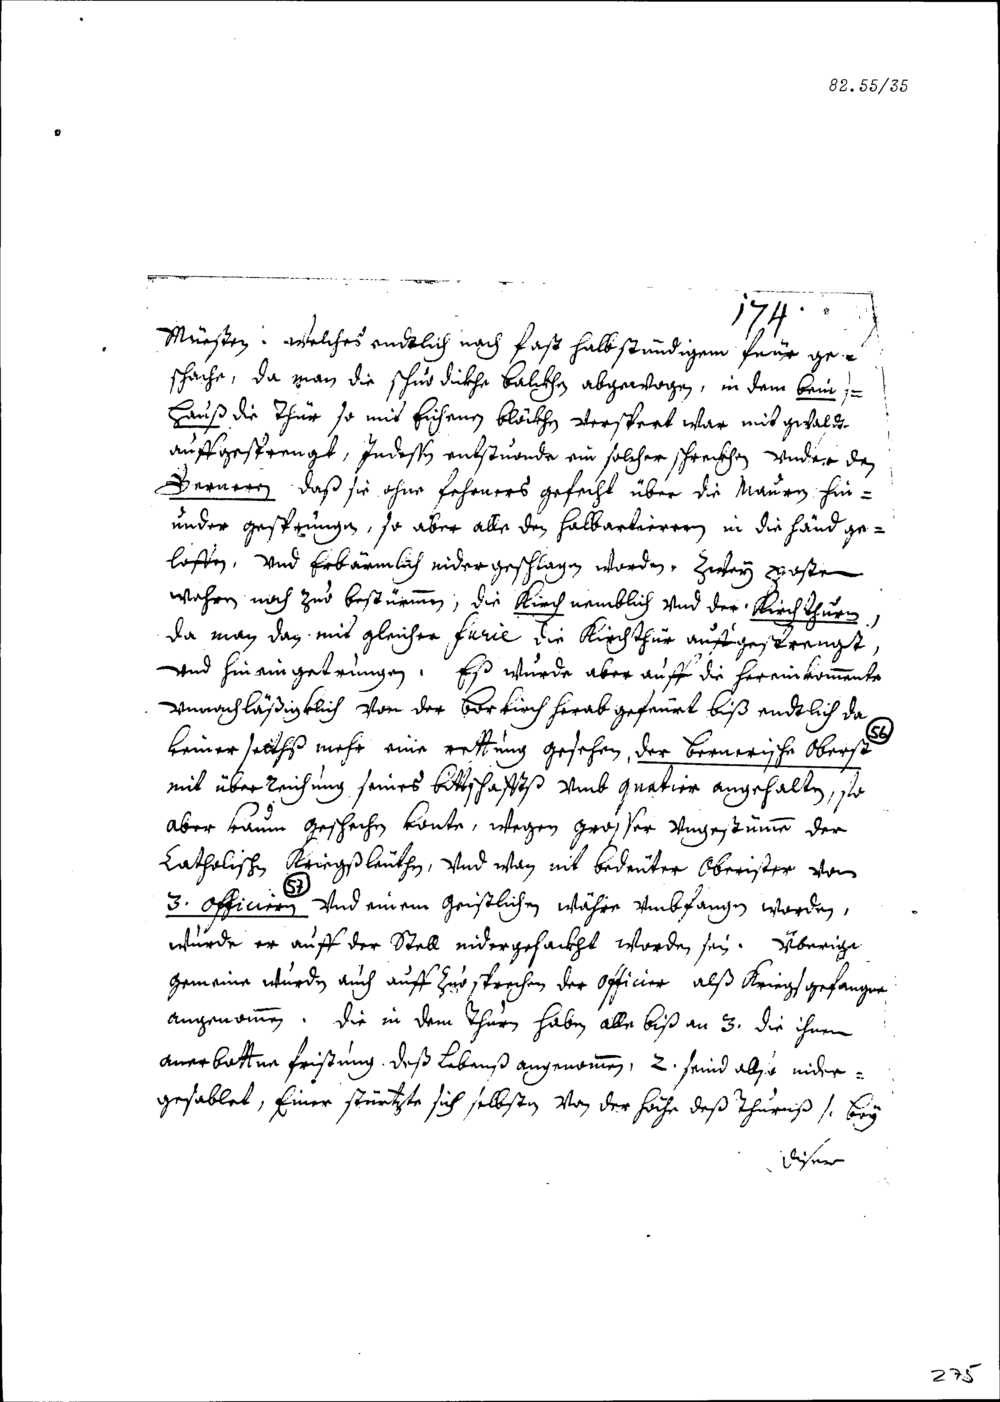 82.55/35
174.
Müesten: welches endtlich nach fast halbstündigem feür ge-
schache, da man die schuo dickhe balckhen abgewogen, in dem bein-
Hauß die Thür so mit Eichenen blöckhen verspert war mit gwalt
auffgesprengt, Indessen entstuonde ein solcher schreckhen under den
Berneren daß sie ohne fehrners gefecht über die Mauren hin-
under gesprungen, so aber alle den halbartiereren in die händ ge-
loffen, und Erbärmlich nidergeschlagen worden. Zwey posten
wahren noch zuo bestürmen, die Kirch nemblich und der Kirchthurn,
da man dan mit gleicher furie die Kirchthür auffgesprengt,
und hineingetrungen. Eß wurde aber auff die hereinkommente
unnachläßigklich von der borkirch herab gefeürt biß endtlich da
keiner seiths mehr eine rettung gesehen, der bernerische Oberst
56
mit überreichung seines bittschaffts umb quatier angehalten, so
aber kaum geschechen konte, wegen grosser Ungestümme der
Catholischen Kriegßleüthen, und wan nit bedeüter Oberister von
57
3. officiern und einem Geistlichen währe umbfangen worden,
wurde er auff der Stell nidergehackht worden sein. Überige
gemeine wurden auch auff zuosprechen der officier alß Kriegsgefangne
angenommen. die in dem Thurn haben alle biß an 3. die ihnen
anerbottne fristung deß Lebens angenommen, 2. seind also nider-
gesablet, Einer stürtzte sich selbsten von der höche deß Thurnß /. bey
diser
275